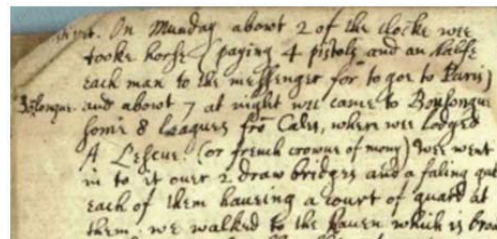 On Munday about 2 of the clocke wee
tooke horse (paying 4 pistols and an halfe
each man to the messenger for to goe to Paris)
Bolongue. and about 7 at night wee came to Boulongue
some 8 leagues frō Cales, where wee lodged
A L'escue. (or french crowne of mony) wee went
in to it over 2 draw bridges and a faling gat
each of them haveing a court of guard at
them. we walked to the haven which is broa